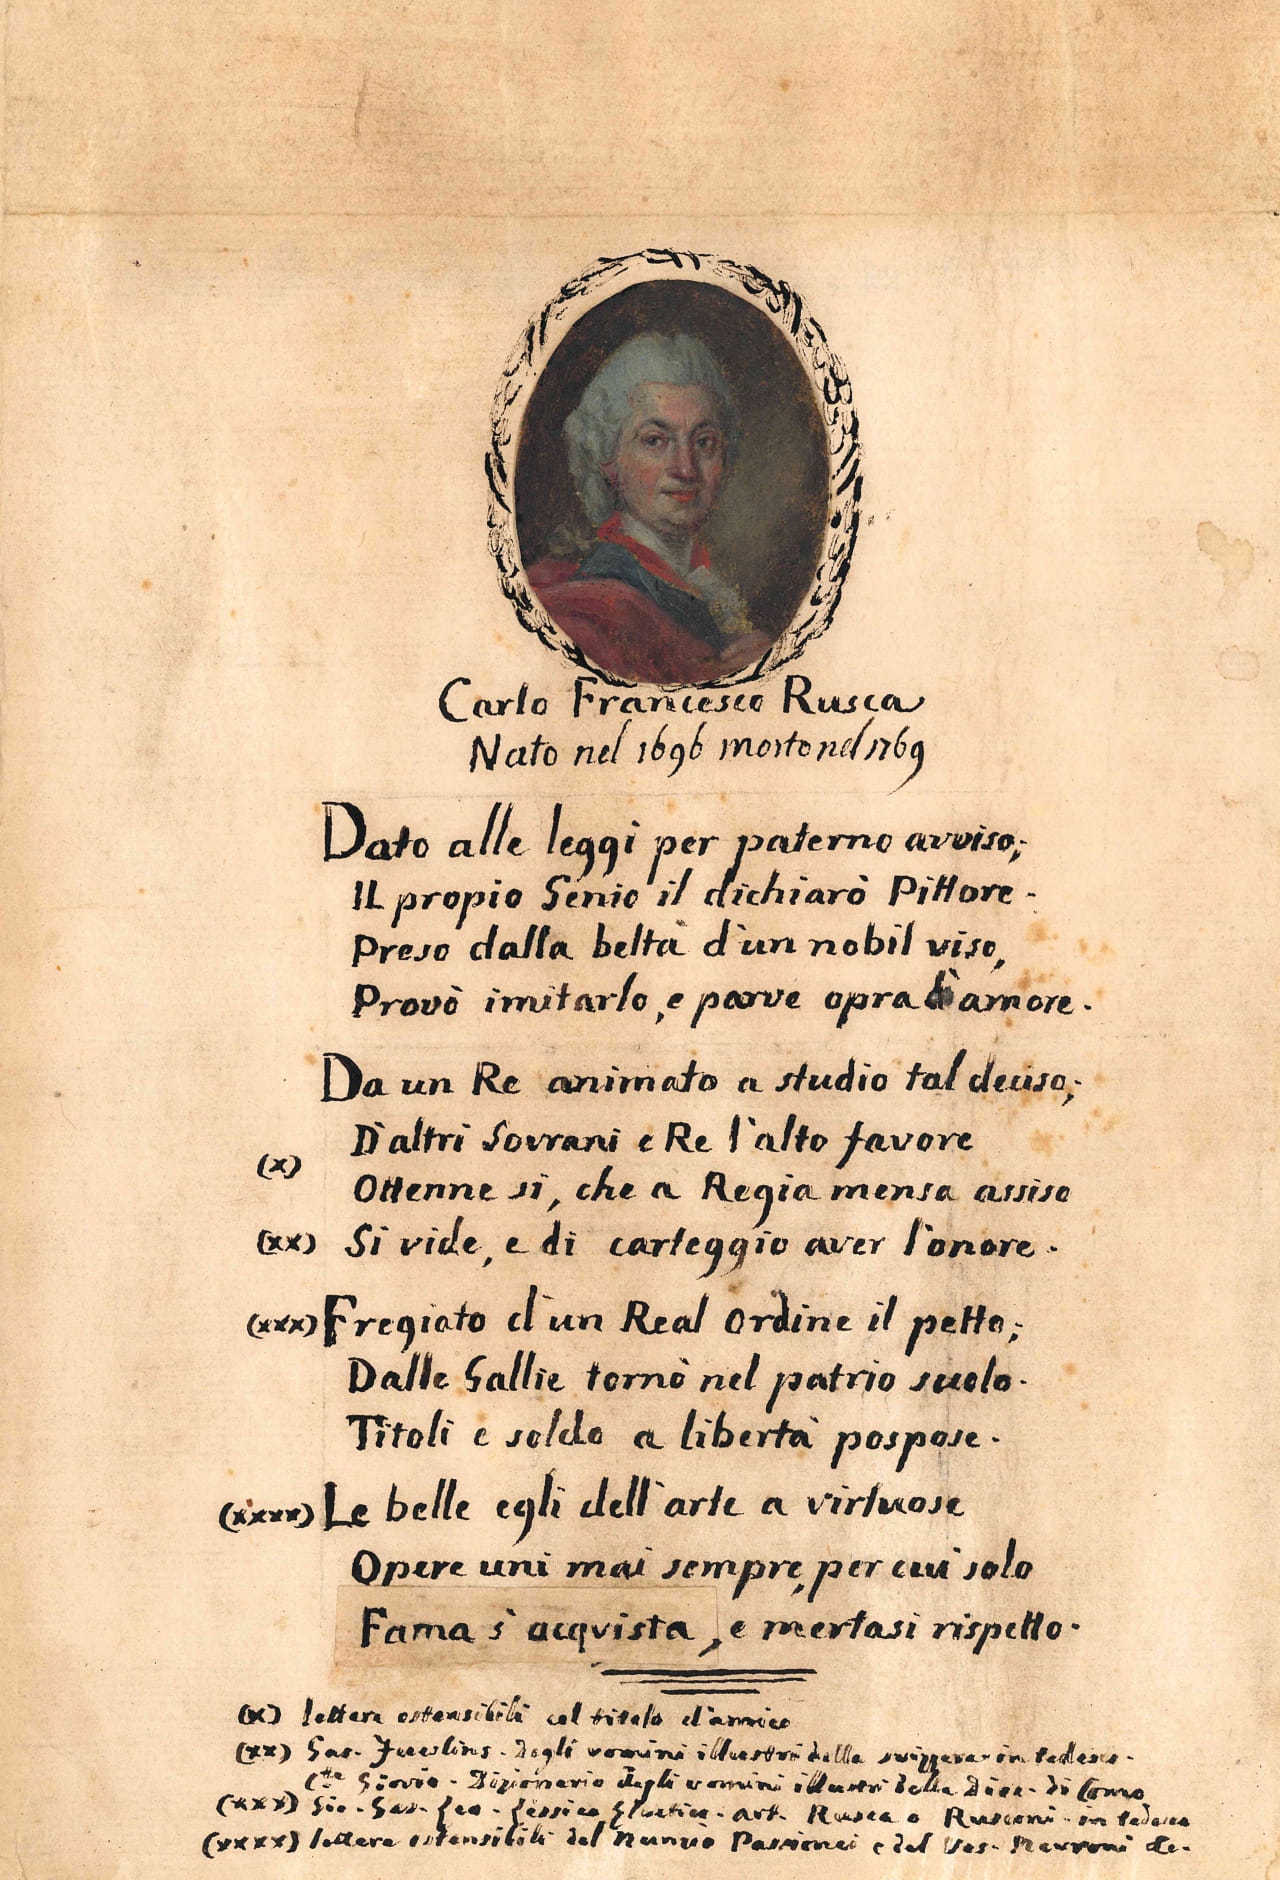 Carlo Francesco Rusca
Nato nel 1696 morto nel 1769
Dato alle leggi per paterno avviso;
IL propio Genio il dichiarò Pittore.
Preso dalla beltà d'un nobil viso,
Provò imitarlo, e parve opra d'amore.
Da un Re animato a studio tal deciso;
D'altri Sovrani e Re l'alto favore
(x) Ottenne sì, che a Regia mensa assiso
(xx) Si vide, e di carteggio aver l'onore.
(xxx) Fregiato d'un Real Ordine il petto;
Dalle Gallie tornò nel patrio suolo.
Titoli e soldo a libertà pospose.
(xxxx) Le belle egli dell'arte a virtuose
Opere unì mai sempre, per cui solo
Fama s'acquista, e mertasi rispetto.
(x) lettere ostensibili col titolo d'amico
(xx) Gas. Fueslins. Degli uomini illustri della svizzera. in tedesco.
Cte Giovio. Dizionario degli uomini illustri della Dioc. di Como
(xxx) Gio. Gas. Leo. Lessico Elvetico. art. Rusca o Rusconi. in tedesco
(xxxx) lettere ostensibili del Nunzio Passionei e del Ves.